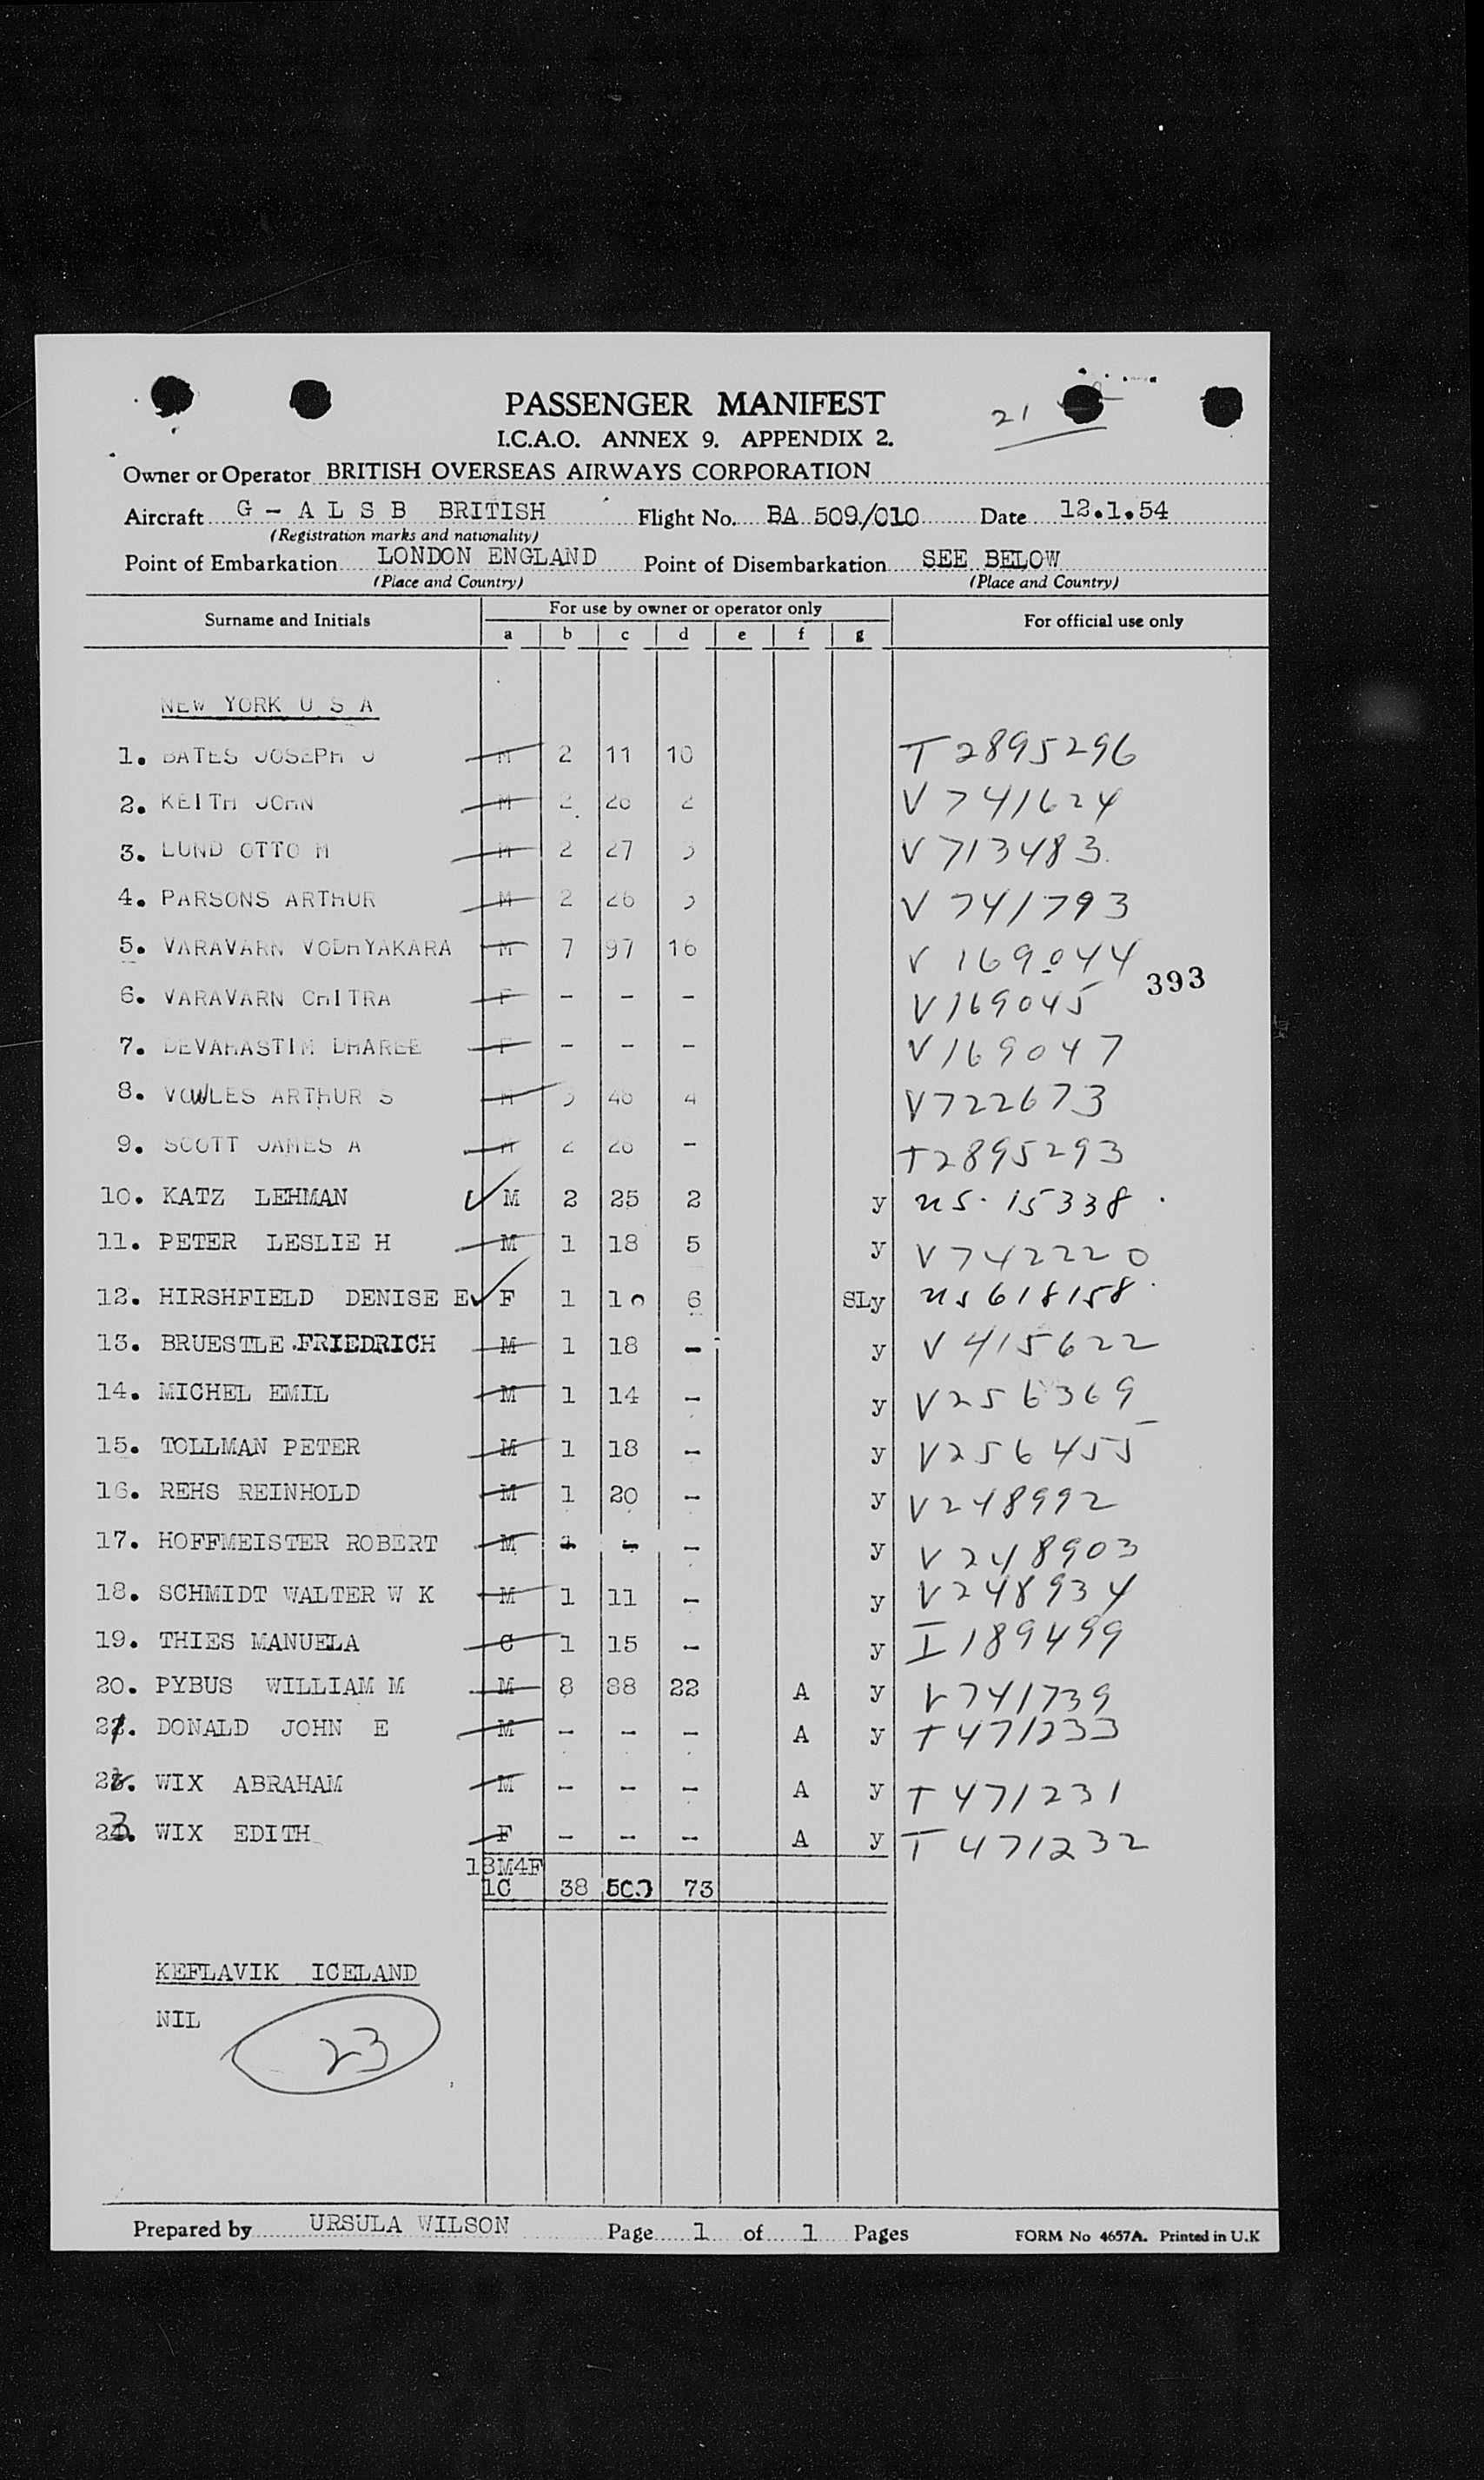 21
PASSENGER MANIFEST
I.C.A.O. ANNEX 9. APPENDIX 2.
Owner or Operator BRITISH OVERSEAS AIRWAYS CORPORATION
Aircraft G - A L S B BRITISH Flight No. BA 509/010 Date 12.1.54
(Registration marks and nationality)
Point of Embarkation LONDON ENGLAND Point of Disembarkation SEE BELOW
(Place and Country) (Place and Country)
Surname and Initials For use by owner or operator only For official use only
a b c d e f g
NEW YORK U S A
1. BATES JOSEPH J M 2 11 10 T 2895296
2. KEITH JOHN M 2 26 2 V 741624
3. LUND OTTO M M 2 27 3 V 713483
4. PARSONS ARTHUR M 2 26 3 V 741793
5. VARAVARN VODHYAKARA M 7 97 16 V 169044
393
6. VARAVARN CHITRA F - - - V169045
7. DEVAHASTIM DHAREE F - - - V169047
8. VOWLES ARTHUR S M 3 46 4 V722673
9. SCOTT JAMES A M 2 26 - T2895293
10. KATZ LEHMAN M 2 25 2 y US. 15338
11. PETER LESLIE H M 1 18 5 y V742220
12. HIRSHFIELD DENISE E F 1 10 6 SLy US 618158
13. BRUESTLE FRIEDRICH M 1 18 - y V 415622
14. MICHEL EMIL M 1 14 - y V256369
15. TOLLMAN PETER M 1 18 - y V256455
16. REHS REINHOLD M 1 20 - y V248992
17. HOFFMEISTER ROBERT M - - y V248903
18. SCHMIDT WALTER W K M 1 11 - y V248934
19. THIES MANUELA C 1 15 - y I 189499
20. PYBUS WILLIAM M M 8 88 22 A y V741739
21. DONALD JOHN E M - - - A y T 471233
22. WIX ABRAHAM M - - - A y T 471231
23. WIX EDITH F - - - A y T 471232
18M4F
1C 38 73
KEFLAVIK ICELAND
NIL
23
Prepared by URSULA WILSON Page 1 of 1 Pages FORM No 4657A. Printed in U.K